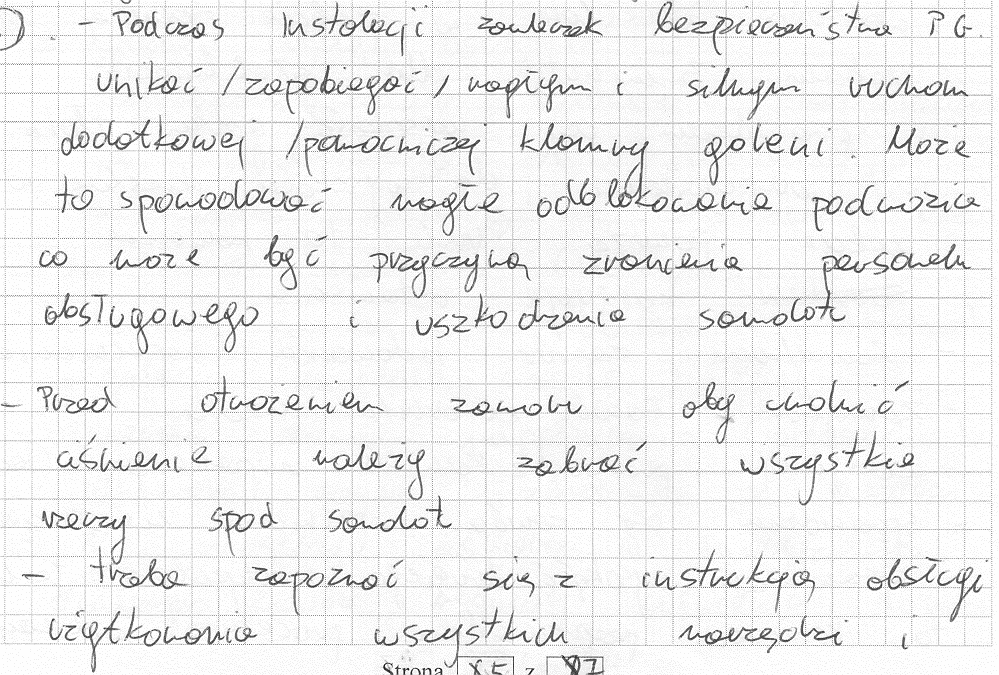 ) - Podczas Instalacji zawleczek bezpieczeństwa PG.
unikać /zapobiegać/ nagłym i silnym ruchom
dodatkowej /pomocniczej klamry goleni. Może
to spowodować nagłe odblokowanie podwozia
co może być przyczyną zranienia personelu
obsługowego i uszkodzenia samolotu
- Przed otwożeniem zaworu aby uwolnić
ciśnienie należy zabrać wszystkie
rzeczy spod samolotu
- trzeba zapoznać się z instrukcją obsługi
użytkowania wszystkich narzędzi i
Strona z